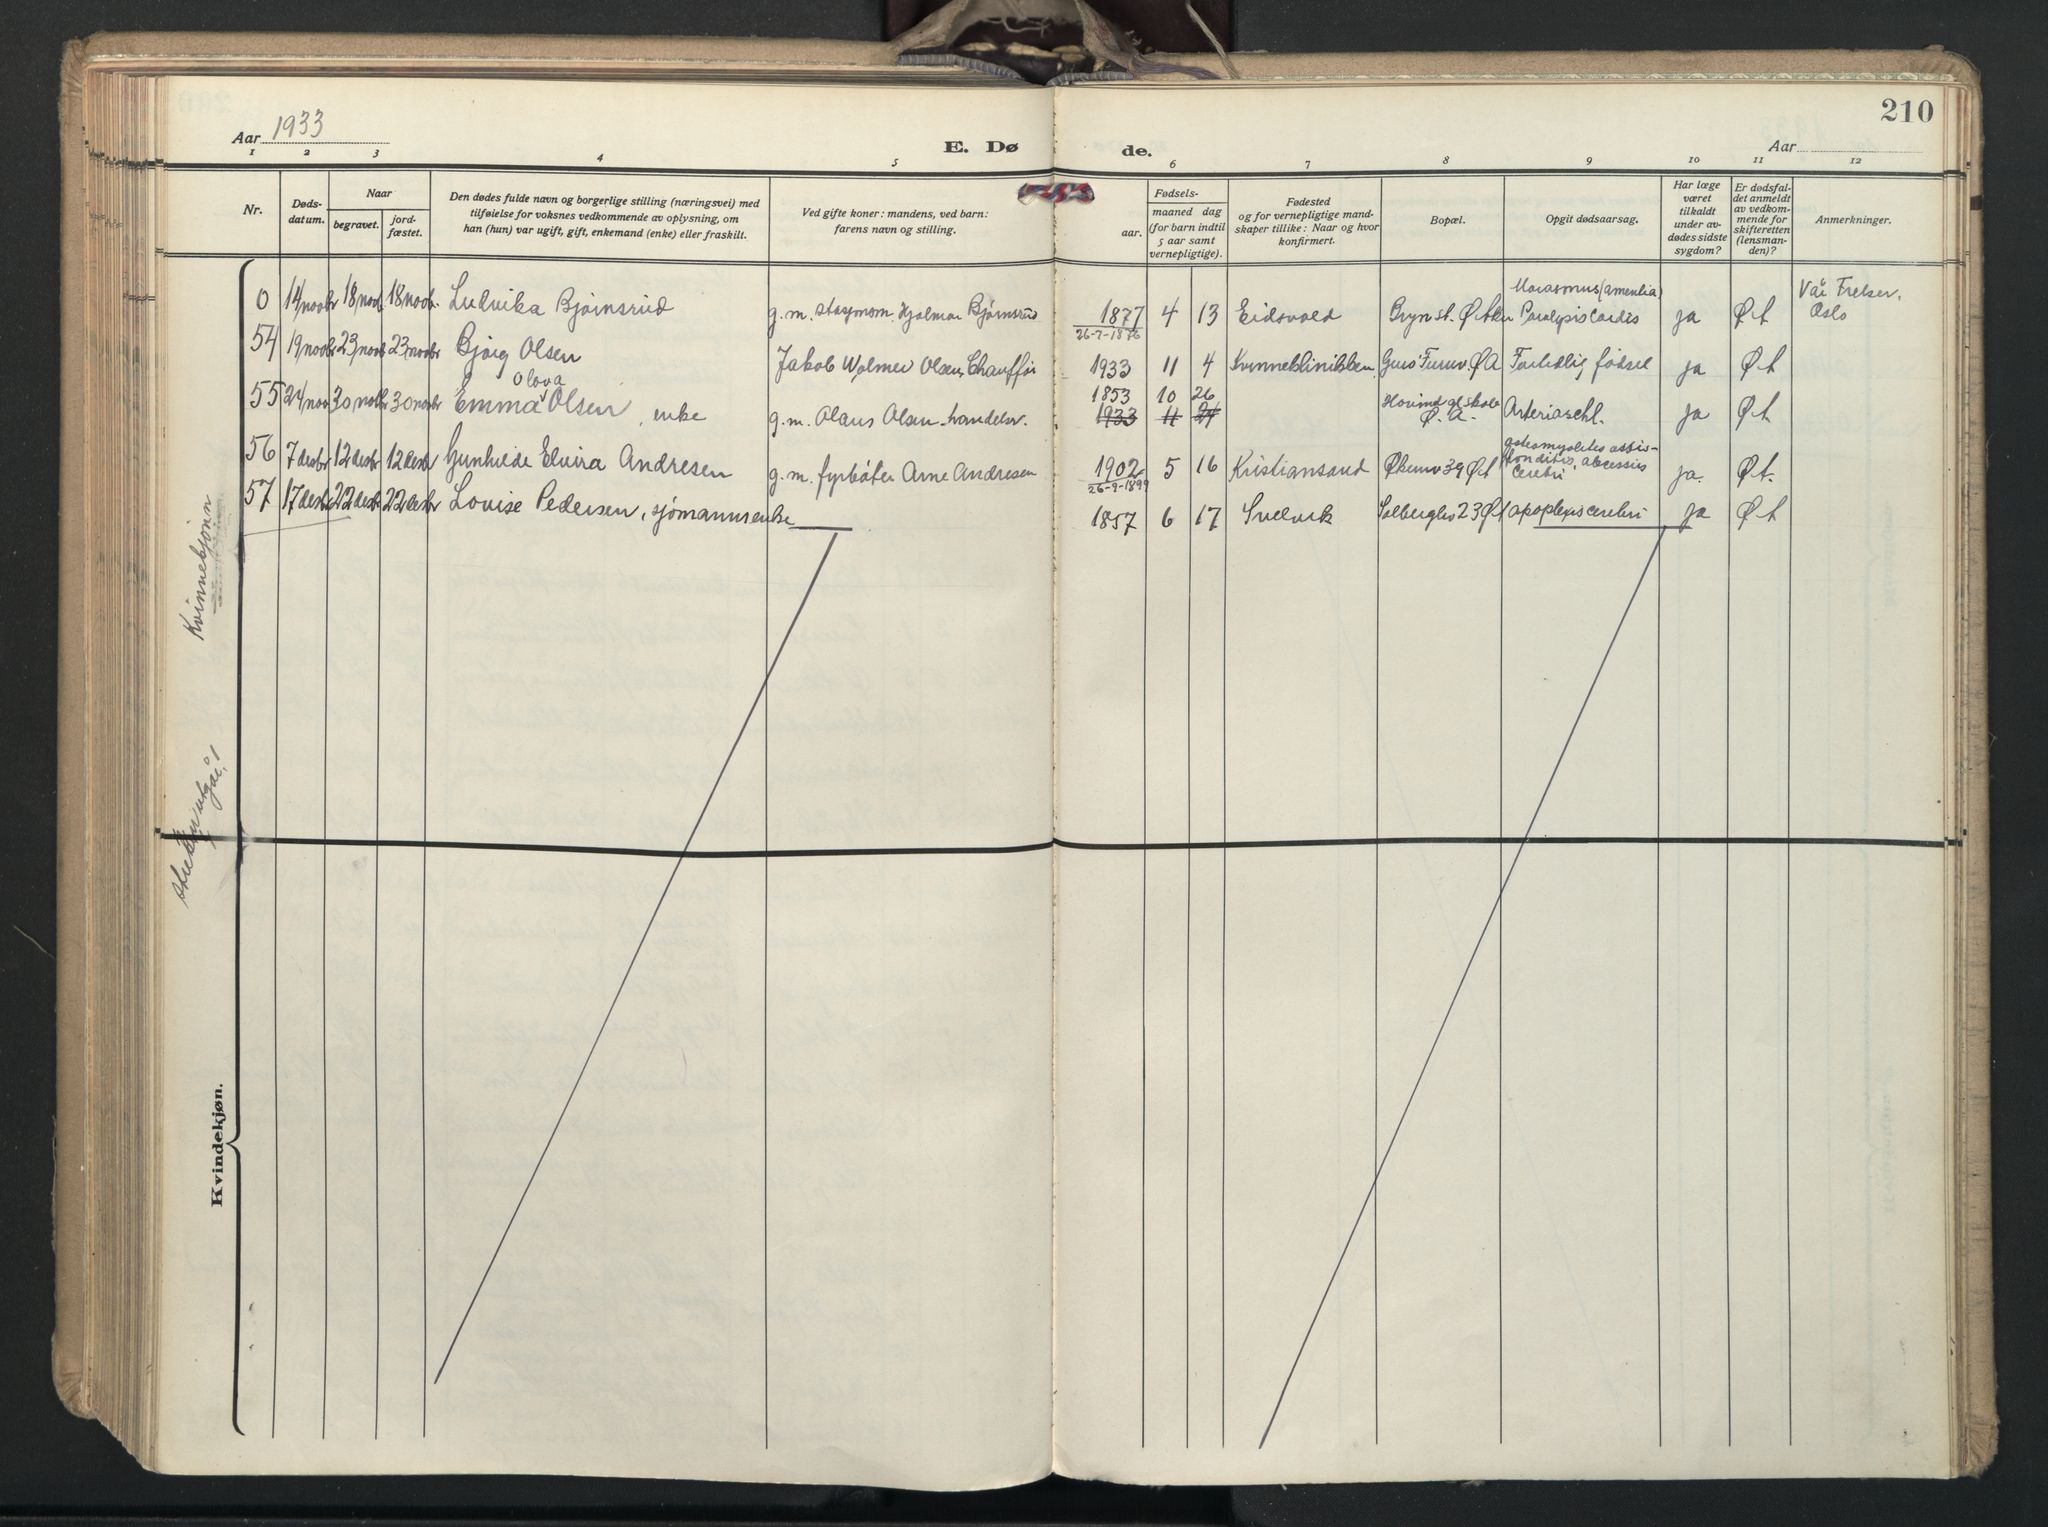 210
Aar 1933
E. Dø de.
Aar
1 2 3 4 5 6 7 8 9 10 11 12
Nr.
Døds-
datum.
Naar
begravet.
jord-
fæstet.
Den dødes fulde navn og borgerlige stilling (næringsvei) med
tilføielse for voksnes vedkommende av oplysning, om
han (hun) var ugift, gift, enkemand (enke) eller fraskilt.
Ved gifte koner: mandens, ved barn:
farens navn og stilling.
Fødsels-
aar.
maaned dag
(for barn indtil
5 aar samt
vernepligtige).
Fødested
og for vernepligtige mand-
skaper tillike: Naar og hvor
konfirmert.
Bopæl.
Opgit dødsaarsag.
Har læge
været
tilkaldt
under av-
dødes sidste
sygdom?
Er dødsfal-
det anmeldt
av vedkom-
mende for
skifteretten
(lensman-
den)?
Anmerkninger.
0 14/novbr 18/novb. 18 novb. Ludvika Bjørnsrud g.m. Hjalmar Bjørnsrud 1877 4 13 Eidsvold Marasmus (amentia) Paralysis Cordis ja Ø A Vår Frelser, Oslo
26-7-1876
54 19 novbr 23/novb 23/novbr Bjørg Olsen Jakob Wolmer Olsen, Chauffør 1933 11 4 Kvinneklinikken Ø A fødsel ja Ø A
Olava
55 24 nov 30 novbr 30 novbr Emma Olsen, enke g.m. Olaus Olsen handelsr. 1853 10 26 Hovind gl skole Ø.A. Arterioschl. ja Ø A
1933 11 24
56 7 desbr 12 desbr 12 desbr Gunhilde Elvira Andresen g.m. fyrbøter Arne Andresen 1902 5 16 Kristiansand Økernv 39 Ø A cerebri ja. Ø A.
26-9-1899
57 17 desbr 22 desbr 22 desbr Louise Pedersen, sjømannsenke 1857 6 17 Svelvik Solbergliv 23 Ø A apoplexs cerebri ja Ø A
Kvinnekjønn
utgår!
Kvindekjøn.